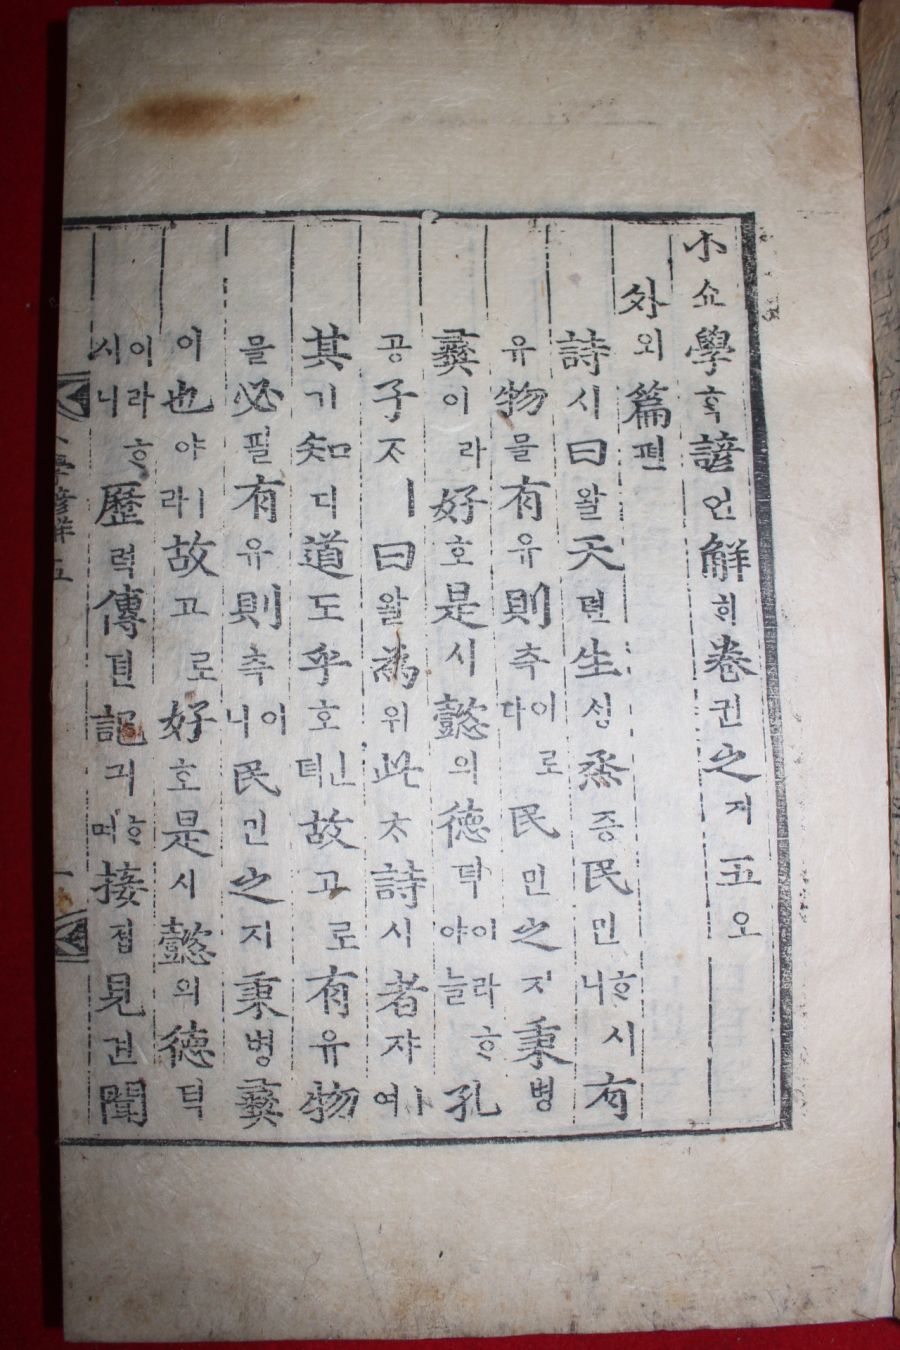 小쇼學ᄒᆞᆨ諺언解ᄒᆡ卷권之지五오
外외篇편
詩시曰왈天텬生ᄉᆡᆼ烝증民민ᄒᆞ시니有
유物믈有유則측이로다民민之지秉병
彛이라好호是시懿의德덕이라ᄒᆞ야늘孔
공子ᄌᆞㅣ曰왈爲위此ᄎᆞ詩시者쟈ㅣ여
其기知디道도乎호ㅣㄴ뎌故고로有유物
믈必필有유則측이니民민之지秉병彛
이也야ㅣ라故고로好호是시懿의德덕
이라ᄒᆞ시니歷력傳뎐記긔ᄒᆞ며接졉見견聞
小學諺解五 一